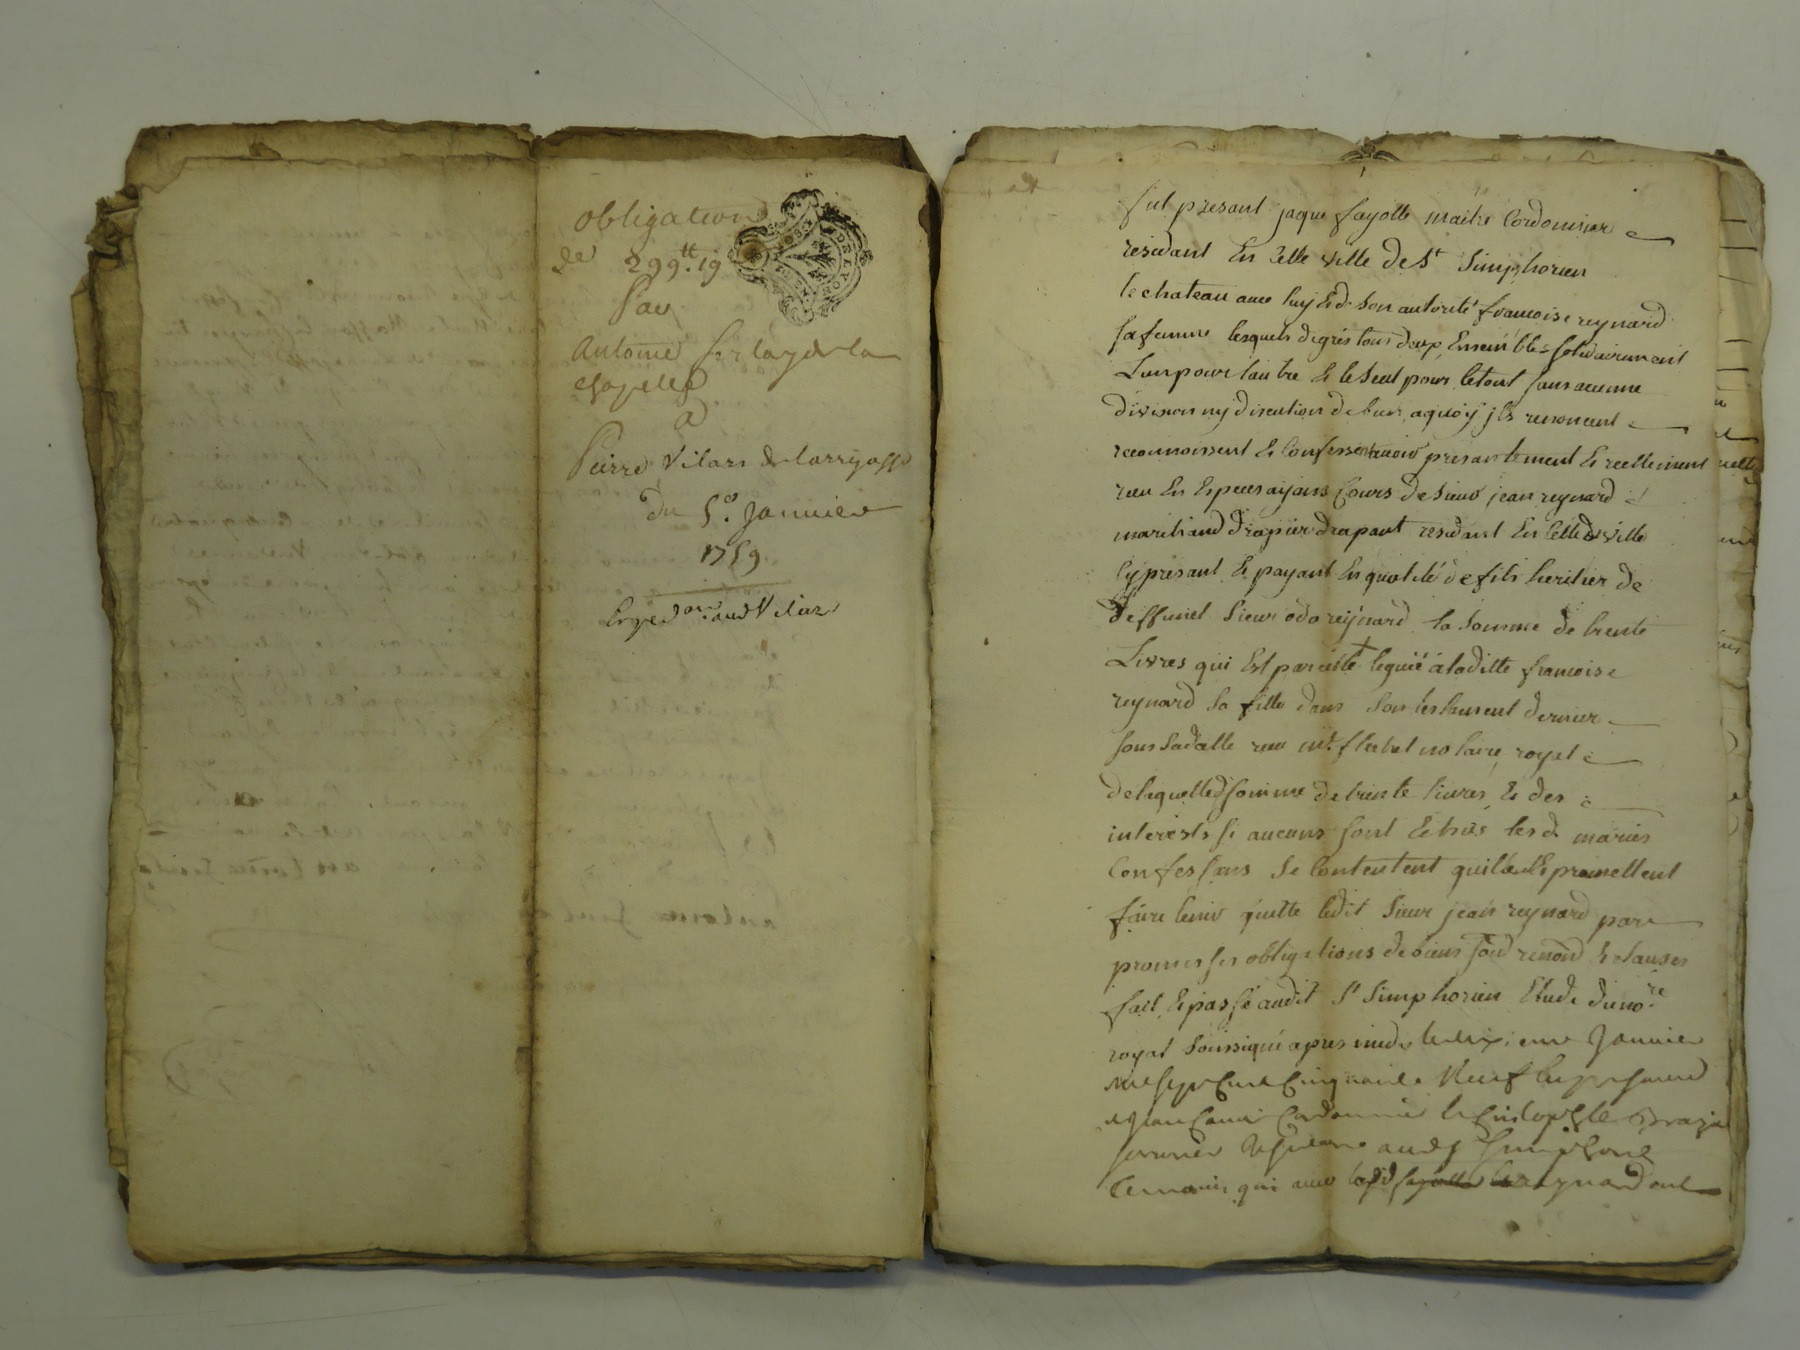 obligation
de 299tt. 19
Par
Antoine de la
chapelle
a
Pierre Vilars de larryasse
du 5e. Janvier
1759
Exped. aud Vilars
fut presant jaque fayolle maitre Cordonnier
residant En cette ville de St Simphorien
le chateau avec luy & de Son autorité francoise reynard
sa femme lesquels de grés tous deux Ensembles solidairement
L'un pour lautre & le Seul pour le tout sans aucune
division ny discution de biens aquoy ils renoncent
reconnoissent & Confessent avoir presantement & reellement
receu En Especes ayans Cours de Sieur jean reynard
marchand drapier drapant residant En cette ditte ville
Cy presant & payant En qualité de fils heritier de
deffunct Sieur reynard la Somme de trente
Livres qui Est pareille leguée à laditte francoise
reynard sa fille dans Son testament dernier
sous sa datte receu me. notaire royal
de laquelle d somme de trente livres & des
interests si aucuns sont les d. mariés
Confessans Se Contentent & promettent
faire tenir quitte ledit Sieur jean reynard par
promesses obligations de biens renond & clauses
fait & passé audit St Simphorien Etude du nore
royal Soussigné apres midy le janvier
mil sept Cent Cinquante Neuf En presence
de jean Cordonnier &
aud St Simphorien
temoins qui avec led reynard ont